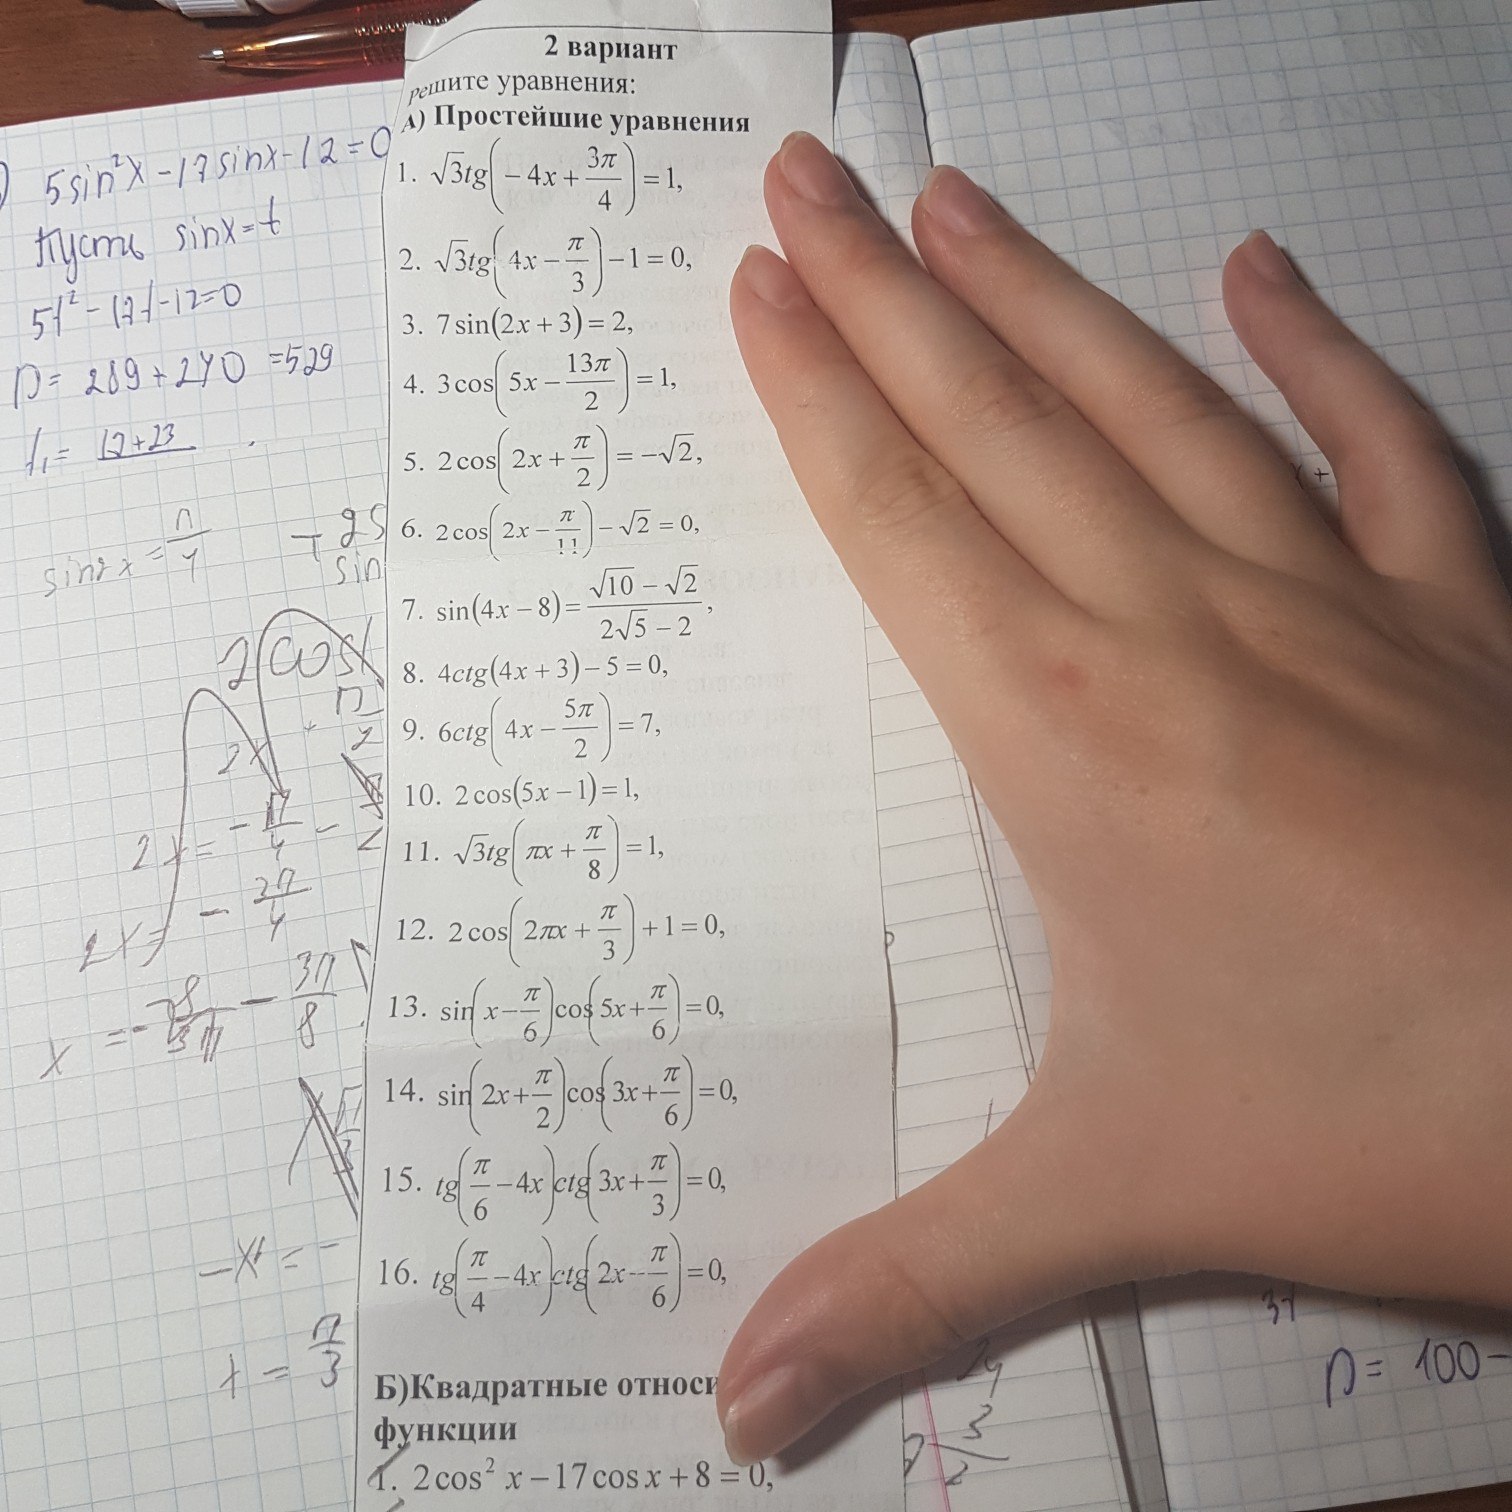 2 вариант
решите уравнения:
А) Простейшие уравнения
1. √3tg(−4x + 3π/4) = 1,
2. √3tg(4x − π/3) − 1 = 0,
3. 7 sin(2x + 3) = 2,
4. 3 cos(5x − 13π/2) = 1,
5. 2 cos(2x + π/2) = −√2,
6. 2 cos(2x − π/!!) − √2 = 0,
7. sin(4x − 8) = (√10 − √2)/(2√5 − 2),
8. 4ctg(4x + 3) − 5 = 0,
9. 6ctg(4x − 5π/2) = 7,
10. 2 cos(5x − 1) = 1,
11. √3tg(πx + π/8) = 1,
12. 2 cos(2πx + π/3) + 1 = 0,
13. sin(x − π/6)cos(5x + π/6) = 0,
14. sin(2x + π/2)cos(3x + π/6) = 0,
15. tg(π/6 − 4x)ctg(3x + π/3) = 0,
16. tg(π/4 − 4x)ctg(2x − π/6) = 0,
Б)Квадратные относи
функции
1. 2 cos² x − 17 cos x + 8 = 0,
5sin²x − 17sinx − 12 = 0
Пусть sinx = t
5t² − 17t − 12 = 0
D = 289 + 240 = 529
t₁ = 17+23
sin2x = π/4
2cos
2x + π/2
2x = − π/4 −
2x = − 3π/4
x = − 3π/8
x = π/3
D = 100 −